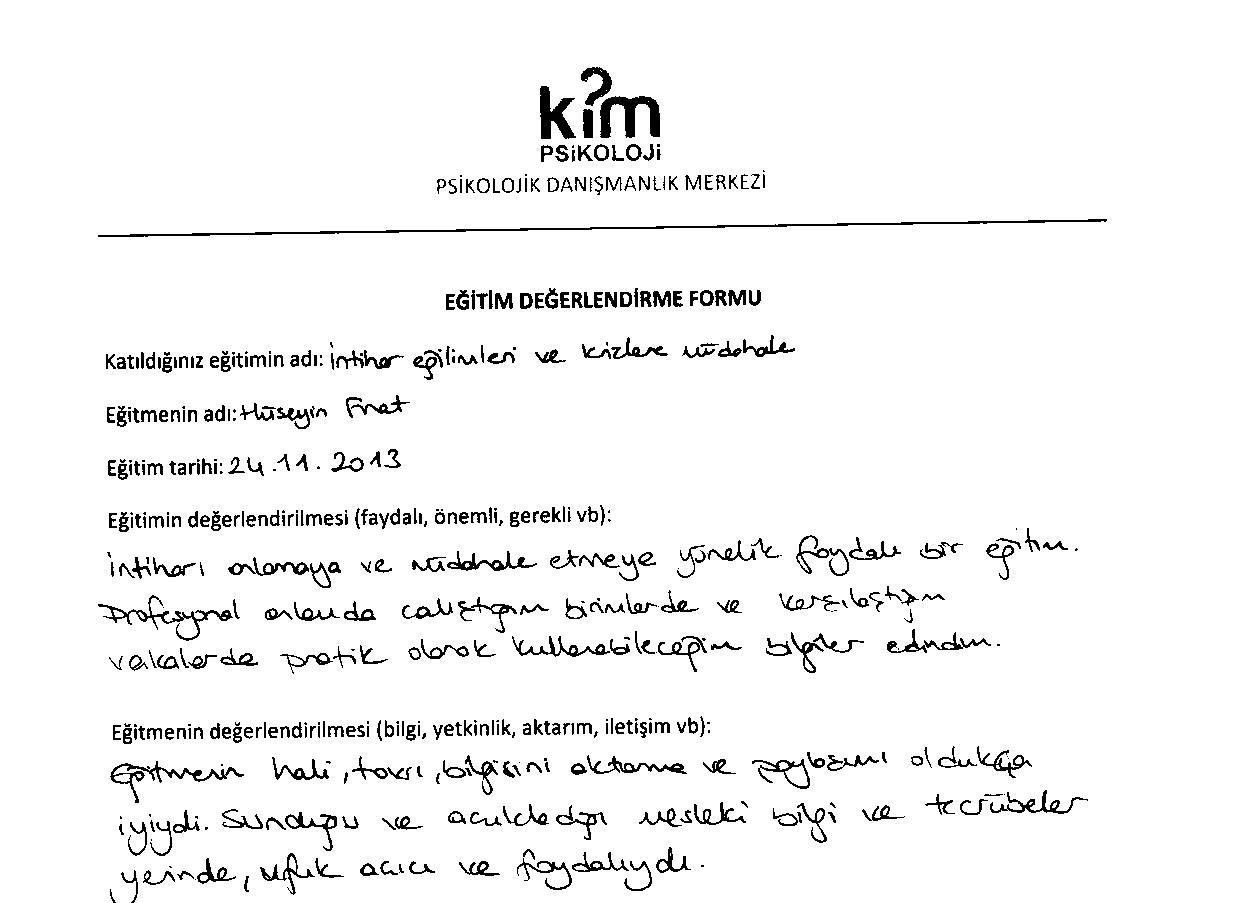 kim
PSiKOLOJi
PSİKOLOJİK DANIŞMANLIK MERKEZİ
EĞİTİM DEĞERLENDİRME FORMU
Katıldığınız eğitimin adı: İntihar eğilimleri ve krizlere müdahale
Eğitmenin adı: Hüseyin Fırat
Eğitim tarihi: 24.11.2013
Eğitimin değerlendirilmesi (faydalı, önemli, gerekli vb):
İntiharı anlamaya ve müdahale etmeye yönelik faydalı bir eğitim.
Profesyonel anlamda çalıştığım birimlerde ve karşılaştığım
vakalarda pratik olarak kullanabileceğim bilgiler edindim.
Eğitmenin değerlendirilmesi (bilgi, yetkinlik, aktarım, iletişim vb):
Eğitmenin hali, tavrı, bilgisini aktarma ve paylaşımı oldukça
iyiydi. Sunduğu ve açıkladığı mesleki bilgi ve tecrübeler
yerinde, ufuk açıcı ve faydalıydı.